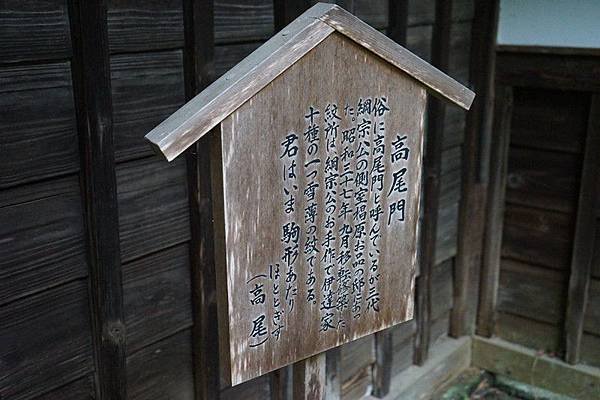 高尾門
俗に高尾門と呼んでいるが三代
綱宗公の側室椙原お品の邸にあっ
た。昭和三十七年九月移転修築した
紋所は綱宗公のお手作で伊達家
十種の一つ雪薄の紋である。
君はいま駒形あたり
ほととぎす
(高尾)